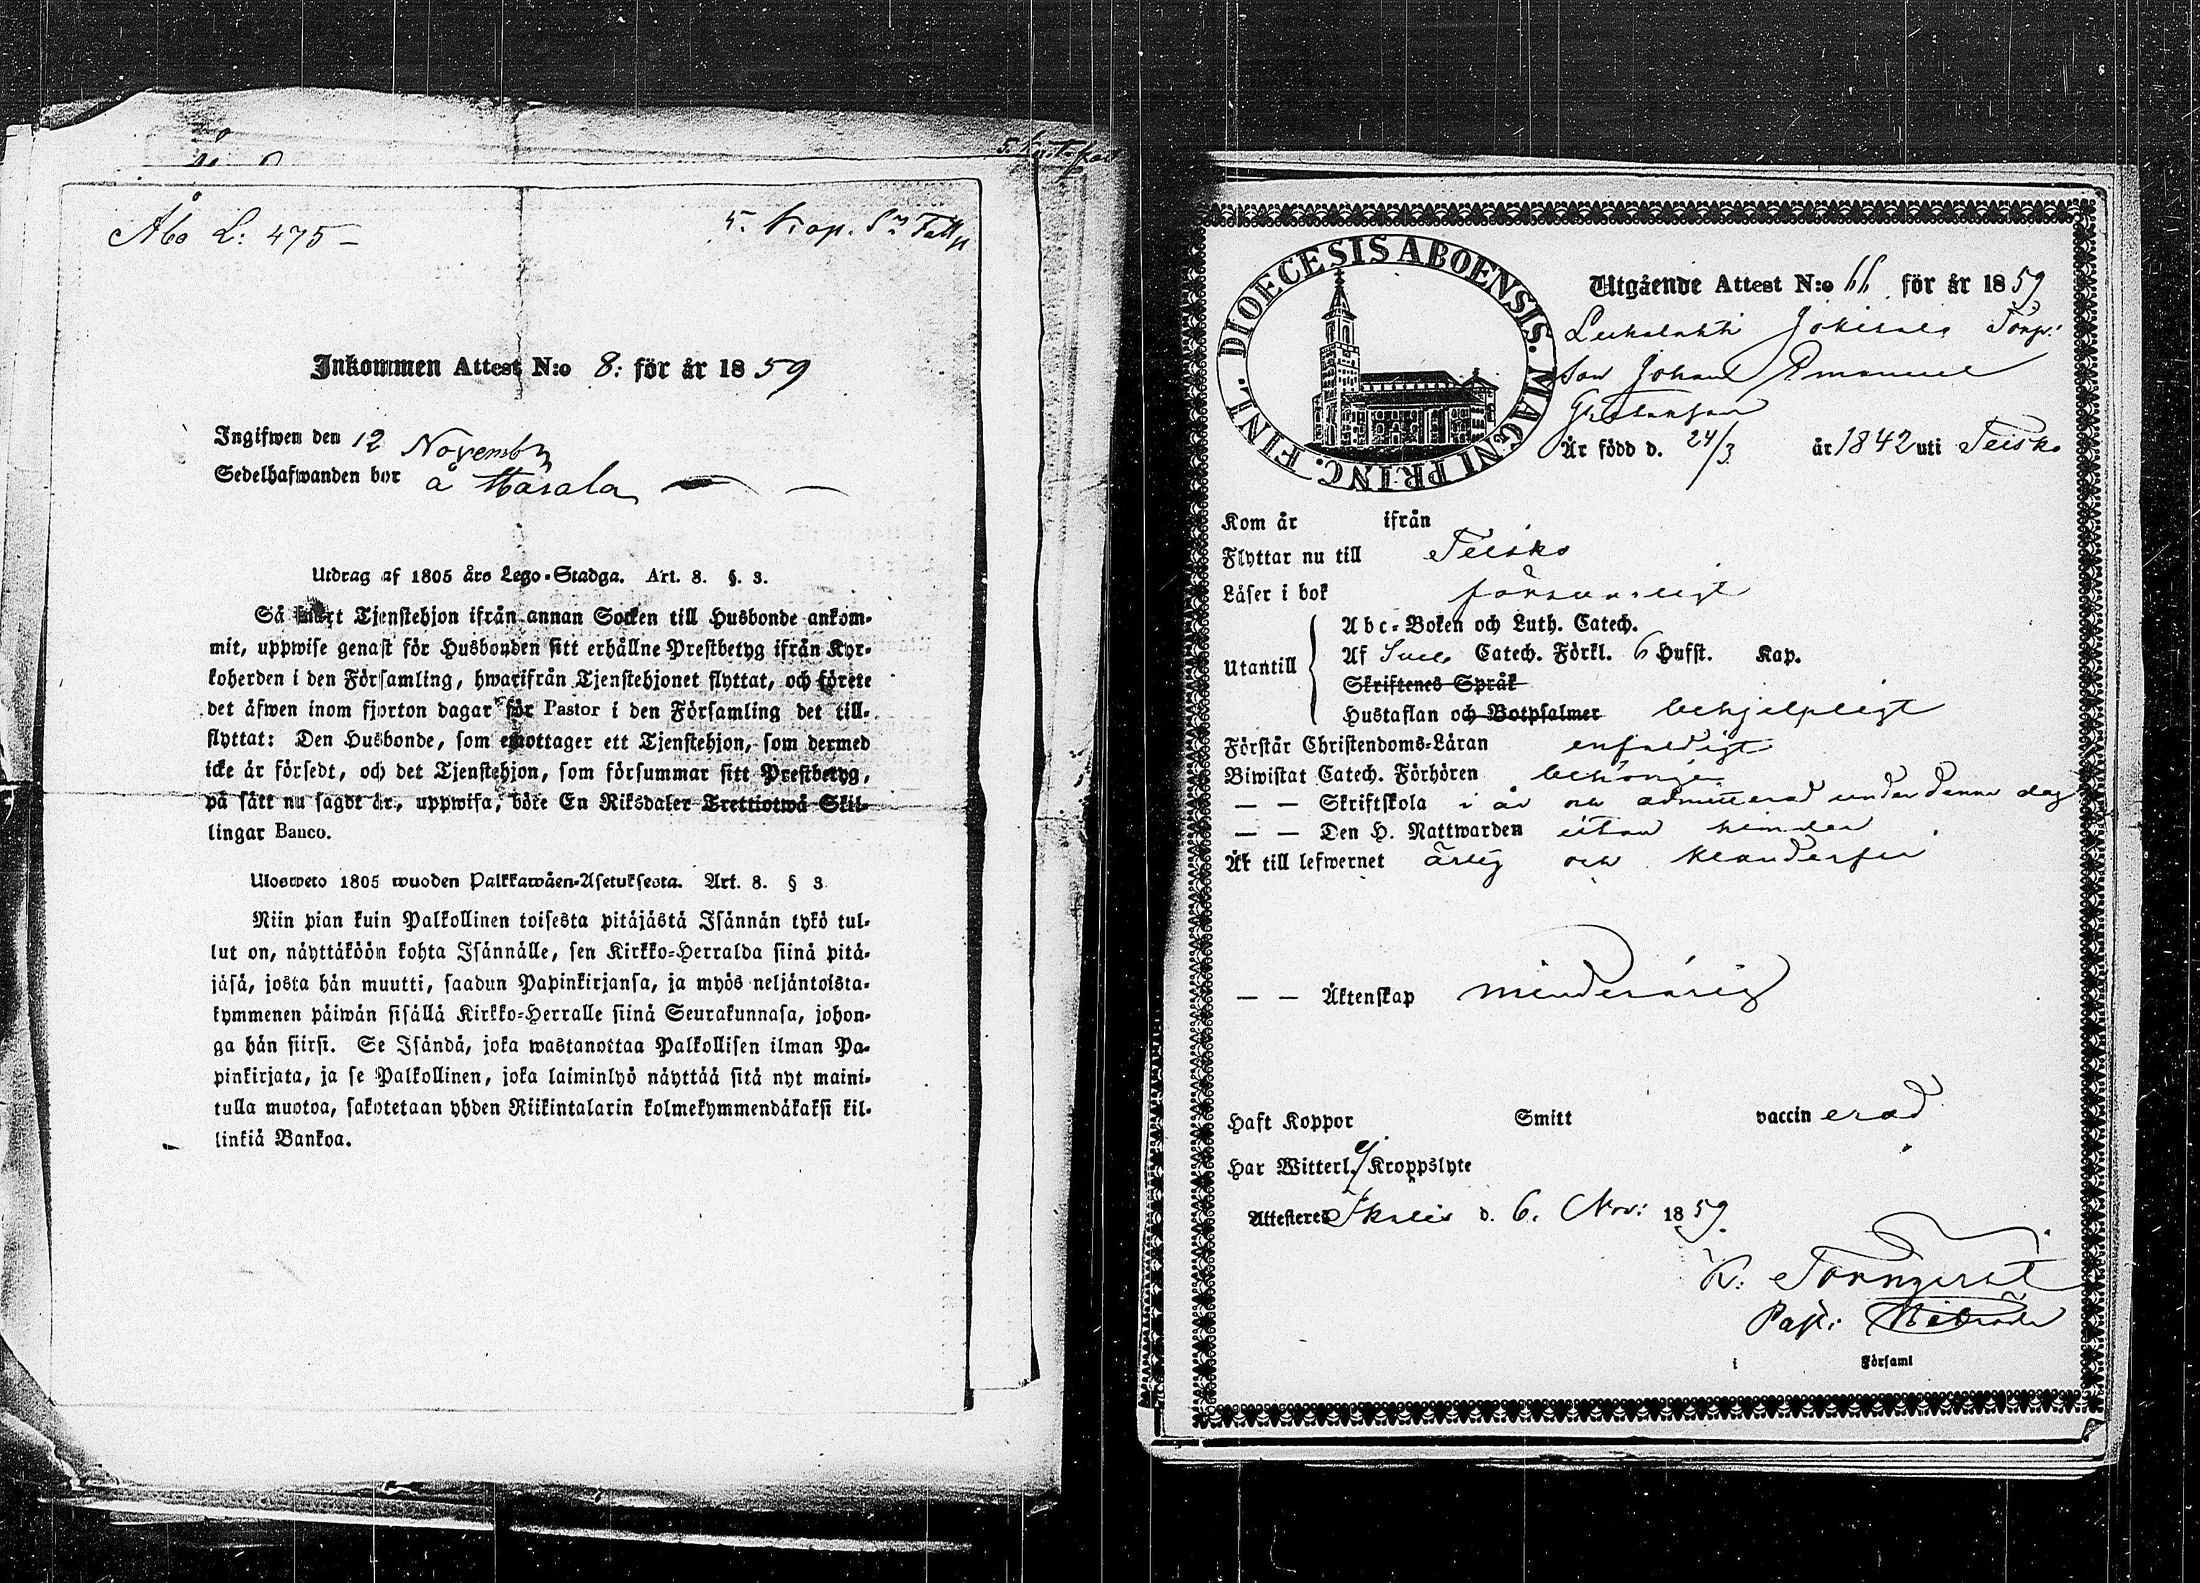 Åbo L: 475 –
5. Kop. Sr
Inkommen Attest N:o 8: för år 1859
Ingifwen den 12 Novembr
Sedelhafwanden bor å Masala
Utdrag af 1805 års Lego-Stadga. Art. 8. §. 3.
Så snart Tjenstehjon ifrån annan Socken till Husbonde ankom-
mit, uppwise genast för Husbonden sitt erhållne Prestbetyg ifrån Kyr-
koherden i den Församling, hwarifrån Tjenstehjonet flyttat, och förete
det äfwen inom fjorton dagar för Pastor i den Församling det till-
flyttat: Den Husbonde, som emottager ett Tjenstehjon, som dermed
icke är försedt, och det Tjenstehjon, som försummar sitt Prestbetyg,
på sätt nu sagdt är, uppwisa, böte En Riksdaler Trettiotwå Skil-
lingar Banco.
Ulosweto 1805 wuoden Palkkawäen-Asetuksesta. Art. 8. § 3.
Niin pian kuin Palkollinen toisesta pitäjästä Isännän tykö tul-
lut on, näyttäköön kohta Isännälle, sen Kirkko-Herralda siinä pitä-
jäsä, josta hän muutti, saadun Papinkirjansa, ja myös neljäntoista-
kymmenen päiwän sisällä Kirkko-Herralle siinä Seurakunnasa, johon-
ga hän siirsi. Se Isändä, joka wastanottaa Palkollisen ilman Pa-
pinkirjata, ja se Palkollinen, joka laiminlyö näyttää sitä nyt maini-
tulla muotoa, sakotetaan yhden Riikintalarin kolmekymmendäkaksi kil-
linkiä Bankoa.
DIOECESIS ABOENSIS. MAGNI PRINC. FINL.
Utgående Attest N:o 66 för år 1859
Torp:
son Johan Emanuel
Gustafsson
Är född d. 24/3 år 1842 uti Teisko
Kom år ifrån
Flyttar nu till Teisko
Läser i bok försvarligt
Utantill
Abc-Boken och Luth. Catech.
Af Sveb. Catech. Förkl. 6 Hufst. Kap.
Skriftenes Språk
Hustaflan och Botpsalmer behjelpligt
Förstår Christendoms-Läran enfaldigt
Biwistat Catech. Förhören behörigen
— — Skriftskola i år och admitterad under denna dag
— — Den H. Nattwarden utan hinder
Är till lefwernet ärlig och klanderfri
— — Äktenskap minderårig
Haft Koppor Smitt vaccinerad
Har Witterl. ej Kroppslyte
Attesteres Ikalis d. 6. Nov: 1859.
K: Tornqvist
Past:
i Församl